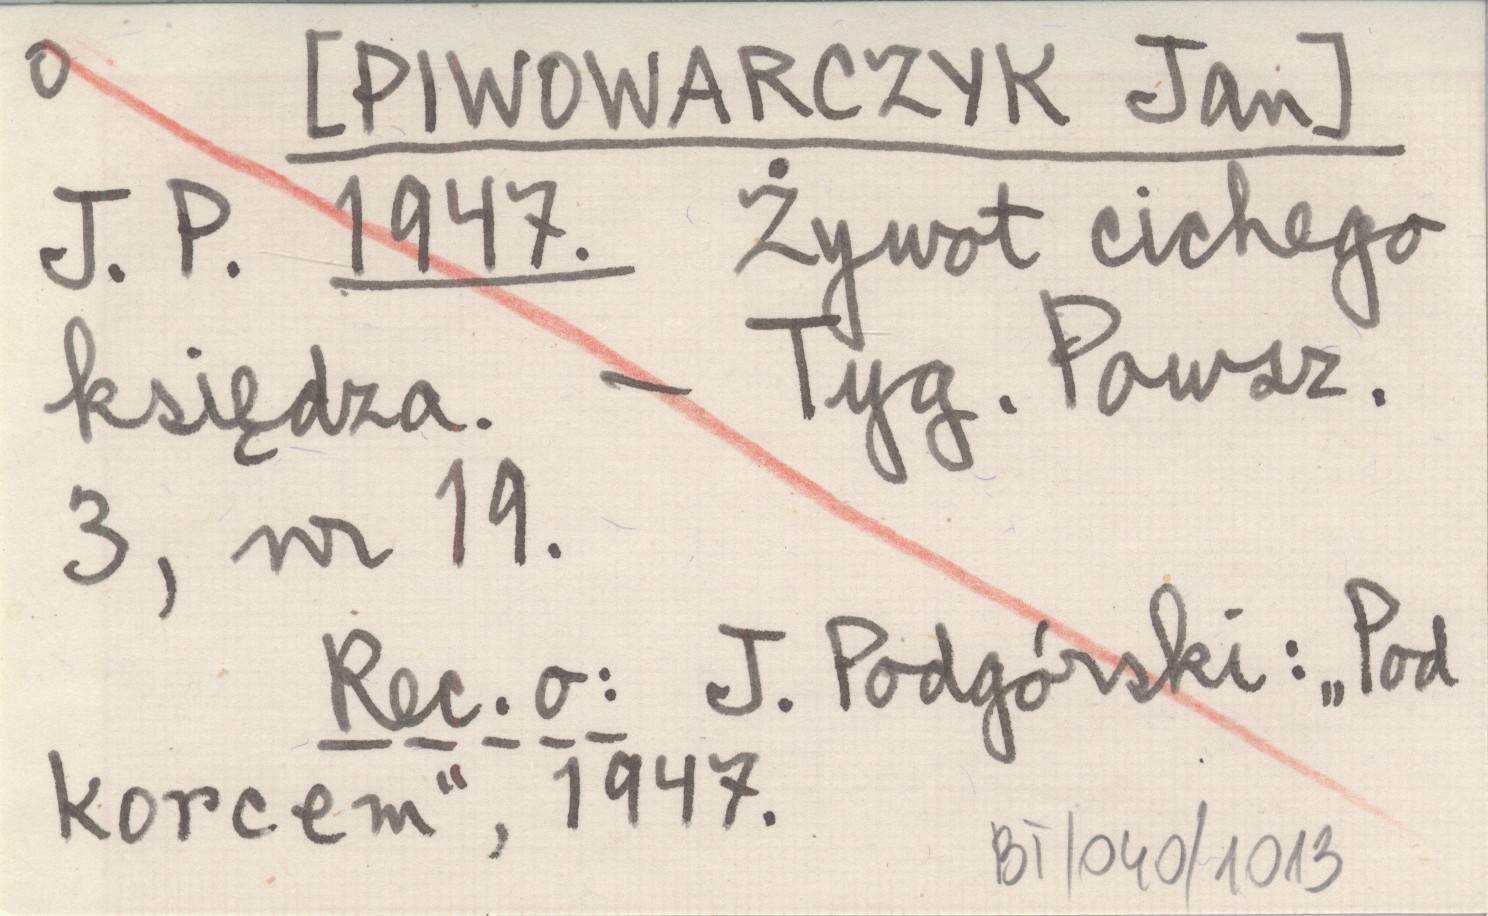 o [PIWOWARCZYK Jan]
J. P. 1947. Żywot cichego
księdza. — Tyg. Powsz.
3, nr 19.
Rec. o: J. Podgórski: „Pod
korcem“, 1947.
BT/040/1013